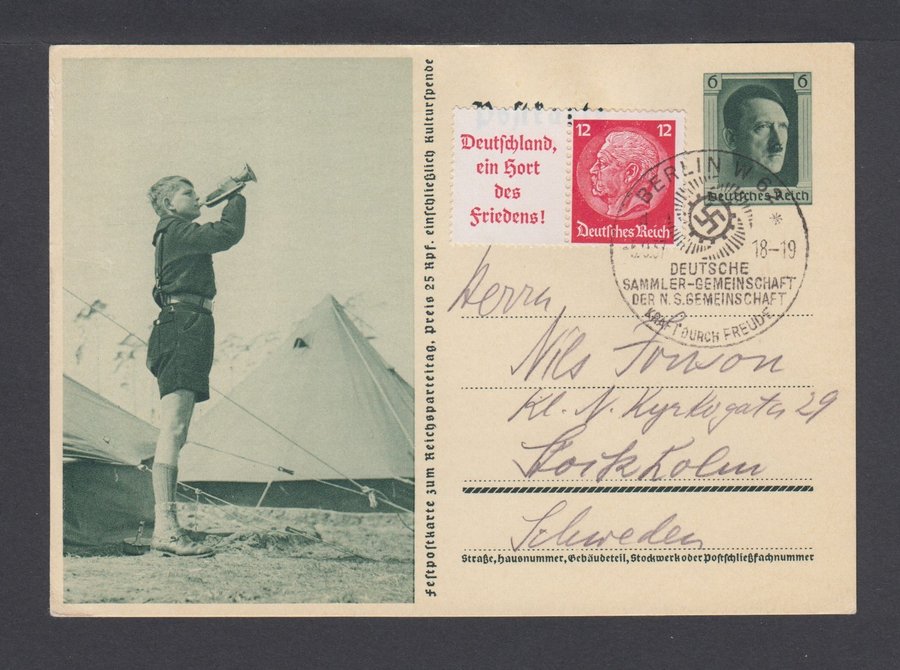 Festpostkarte zum Reichsparteitag, Preis 25 Rpf. einschließlich Kulturspende
Postkarte
Deutschland,
ein Hort
des
Friedens!
12 12
Deutsches Reich
6 6
Deutsches Reich
BERLIN W
18-19
DEUTSCHE
SAMMLER-GEMEINSCHAFT
DER N.S.GEMEINSCHAFT
KRAFT DURCH FREUDE
Herrn
Nils
Kl. N. Kyrkogatan 29
Stockholm
Schweden
Straße, Hausnummer, Gebäudeteil, Stockwerk oder Postschließfachnummer